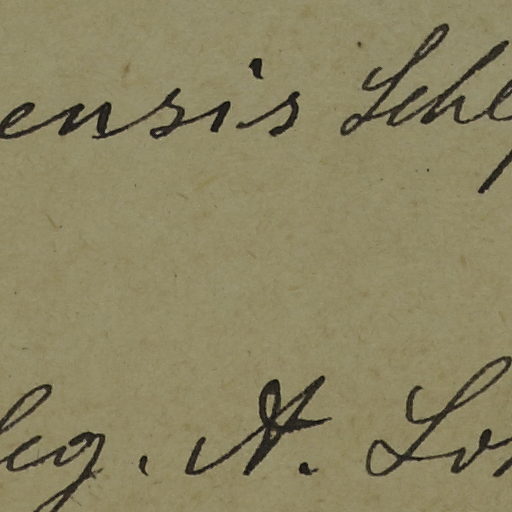 ensis Schl
Leg. A. Lo